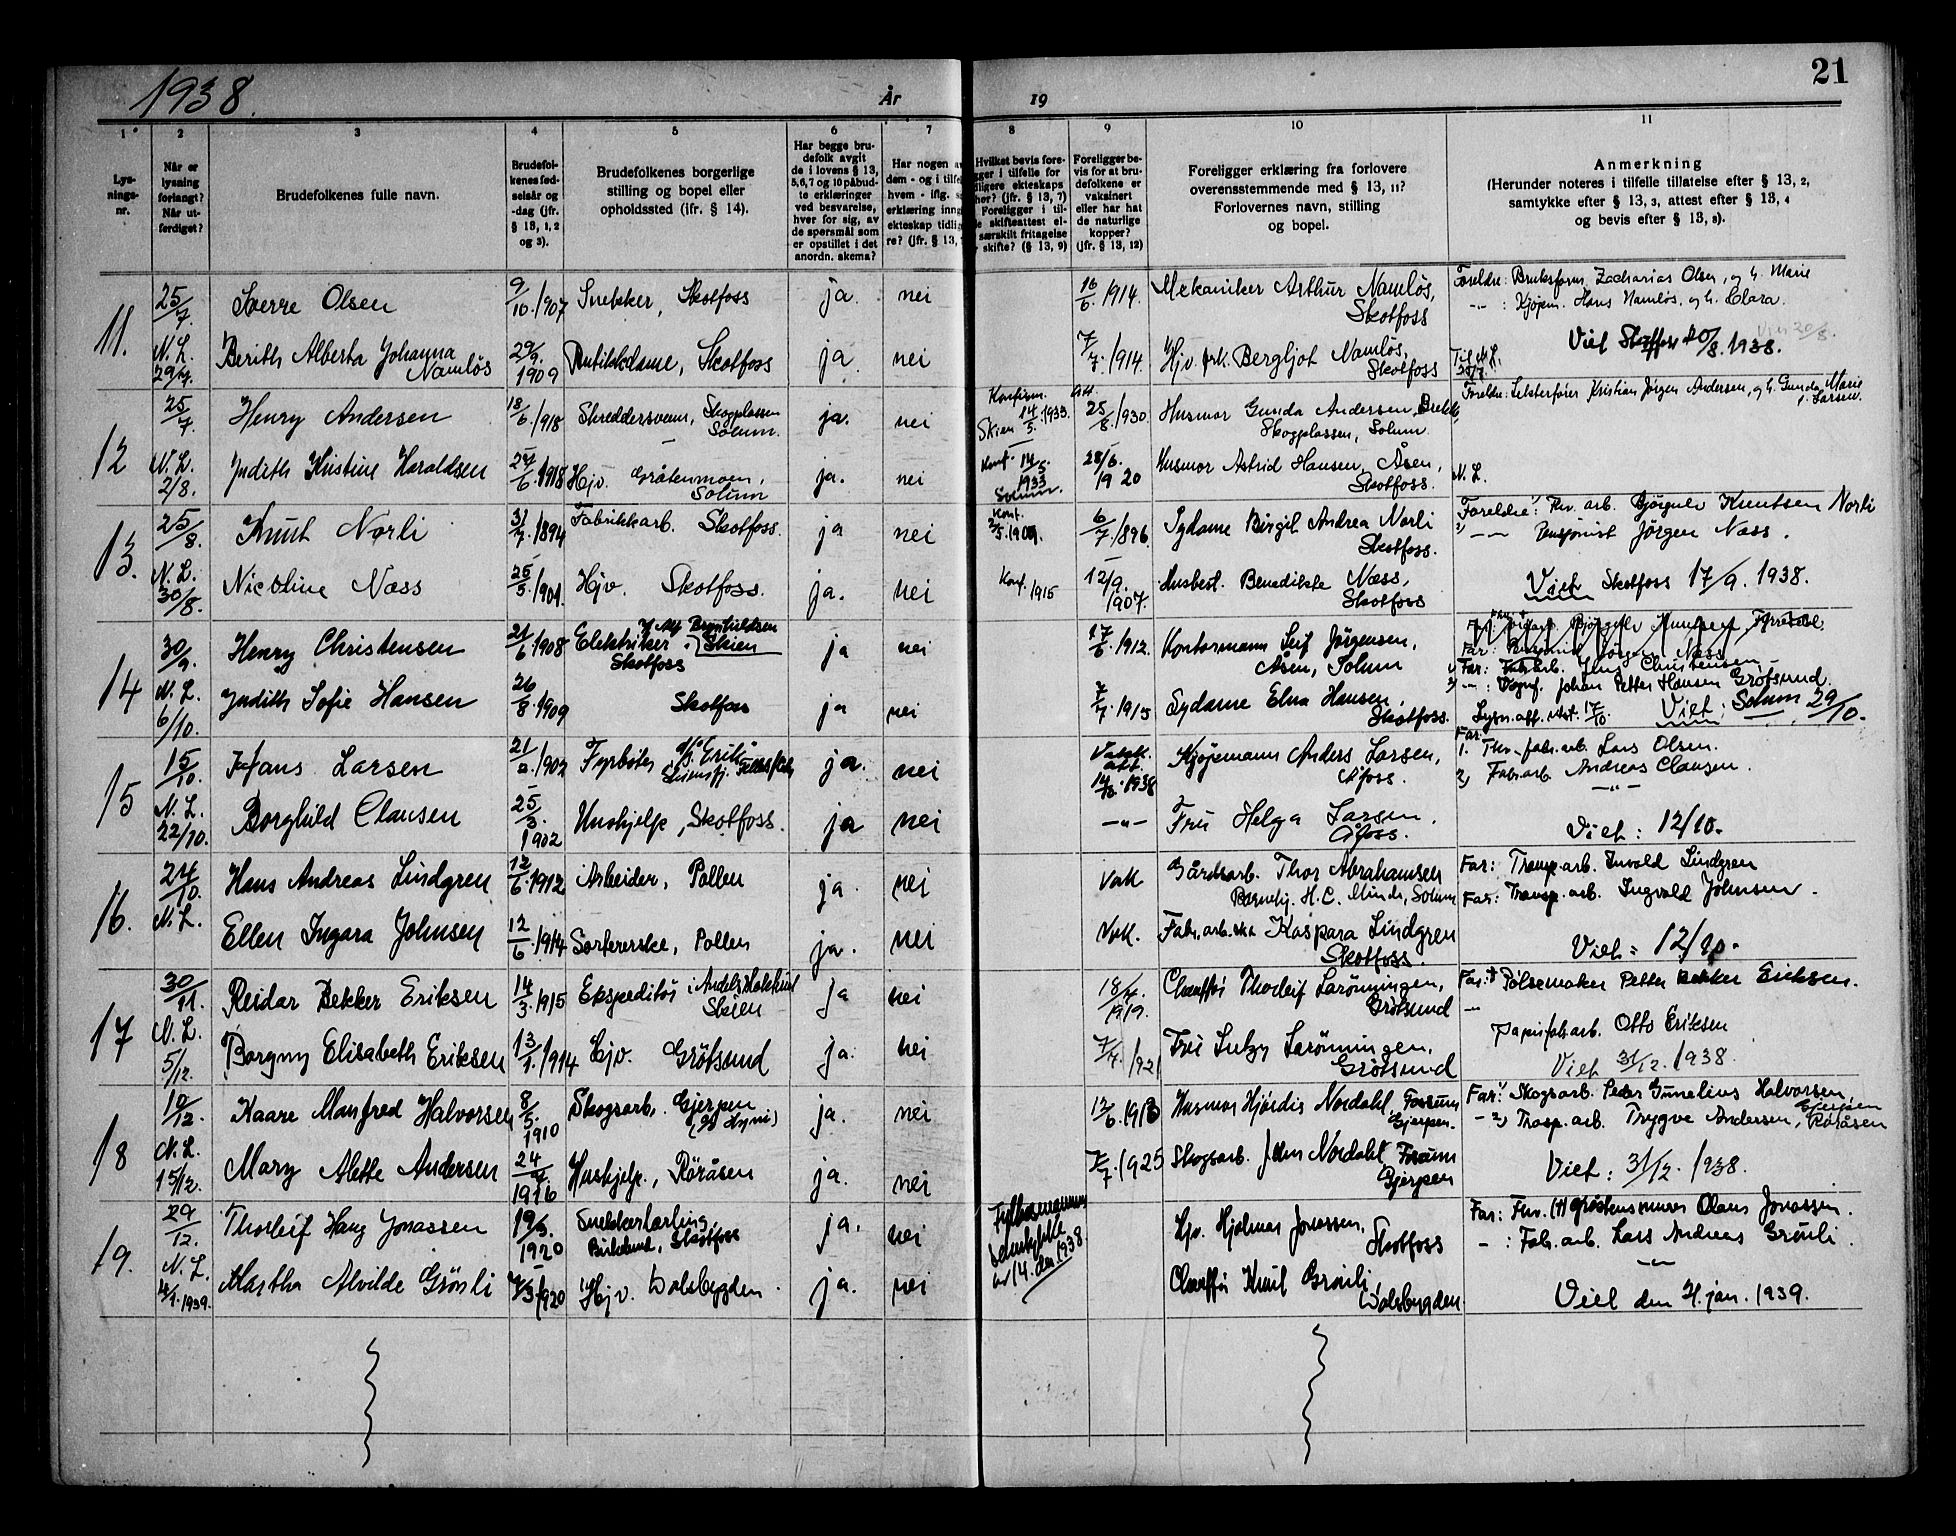 1938.
År
19
21
1
2
3
4
5
6
7
8
9
10
11
Lys-
nings-
nr.
Når er
lysning
forlangt?
Når ut-
ferdiget?
Brudefolkenes fulle navn.
Brudefol-
kenes fød-
selsår og
-dag (jfr.
§ 13, 1, 2
og 3).
Brudefolkenes borgerlige
stilling og bopel eller
opholdssted (ifr. § 14).
Har begge bru-
defolk avgit
de i lovens § 13,
5,6,7 og 10 påbud-
te erklæringer
ved besvarelse,
hver for sig, av
de spørsmål som
er opstillet i det
anordn. skema?
Har nogen av
dem - og i tilfe
hvem - iflg. s
erklæring inng
ekteskap tidli
re? (jfr. § 13,
Hvilket bevis fore-
gger i tilfelle for
ligere ekteskaps
her? (jfr. § 13, 7)
Foreligger i til-
le skifteattest el-
særskilt fritagelse
skifte? (§ 13, 9)
Foreligger be-
vis for at bru-
defolkene er
vaksinert
eller har hat
de naturlige
kopper?
(jfr. § 13, 12)
Foreligger erklæring fra forlovere
overensstemmende med § 13, 11?
Forlovernes navn, stilling
og bopel.
Anmerkning
(Herunder noteres i tilfelle tillatelse efter § 13, 2,
samtykke efter § 13, 3, attest efter § 13, 4
og bevis efter § 13, 8).
11.
25/7. Sverre Olsen 9/10.1907 Snekker, Skotfoss ja. nei 16/6.1914. Mekaniker Arthur Namløs, Skotfoss
Foreldre: Bruksform. Zacharias Olsen, og h. Marie
-"- : Kjøpm. Hans Namløs, og h. Clara.
Viet Skotfoss 20/8.1938.
Viet 20/8.
N.L. 29/7. Berith Alberta Johanna Namløs 29/9. 1909 Butikkdame, Skotfoss ja nei 7/7.1914. Hjv. frk. Bergljot Namløs, Skotfoss
12
25/7. Henry Andersen 18/6.1918 Skreddersvenn, Skogplassen Solum. ja. nei Konfirm. Skien 14/5.1933. 25/8.1930 Husmor Gunda Andersen, Skogplassen, Solum.
Foreldre: Lekterfører Kristian Jørgen Andersen, og h. Gunda Marie f. Larsen.
N.L. 2/8. Judith Kristine Haraldsen 1918 Hjv. Gråtenmoen, Solum ja. nei Konf. 14/5 1933 Solum. 28/6. 1920 Husmor Astrid Hansen, Åsen, Skotfoss. N.L.
13.
25/8. Knut Norli 31/7.1894 Fabrikkarb. Skotfoss. ja nei Konf. 1909. 6/7.1896. Sydame Birgit Andrea Norli Skotfoss.
Foreldre: 1) Fhv. arb. Bjørgulv Knutsen Norli
2) -"- Pensjonist Jørgen Næss.
N.L. 30/8. Nicoline Næss 25/5.1901. Hjv. Skotfoss. ja. nei Konf. 1915 12/9. 1907. Husbest. Benedikte Næss, Skotfoss
Viet Skotfoss 17/9. 1938.
14
30/9. Henry Christensen 21/6.1908 Elektriker Skotfoss Skien ja nei 17/6.1912. Kontormann Leif Jørgensen, Åsen, Solum
1) Far: Fabr.arb. Jens Christensen
2) -"- : Johan Petter Hansen Grøtsund.
N.L. 6/10. Judith Sofie Hansen 26/8.1909 Skotfoss ja nei 7/7.1915 Sydame Elna Hansen, Skotfoss.
Lysn.att. utst. 17/10. Viet: Solum 29/10.
15
15/10. Hans Larsen 1902 Fyrbøter ja. nei Vakt. att. 1938 Kjøpmann Anders Larsen, Åfoss.
Far:
1. Fhv. fabr.arb. Lars Olsen.
2) Fabr.arb. Andreas Clausen.
N.L. 22/10. Borghild Clausen 25/3. 1902 Hushjelp, Skotfoss. ja nei -"- Fru Helga Larsen. Åfoss.
Viet: 12/10.
16.
24/10. Hans Andreas Lindgren 12/6.1912 Arbeider, Pollen ja. nei Vakt Gårdsarb. Thor Abrahamsen H. C. Minde, Solum
Far: Transp.arb. Invald Lindgren
Far: Transp. arb. Ingvald Johnsen.
N.L. Ellen Ingara Johnsen 12/6.1914 Sortererske, Pollen ja. nei Vakt. Fabr.arb.ske Kaspara Lindgren Skotfoss.
Viet: 12/10.
17
30/11. Reidar Bekker Eriksen 14/3.1915 Ekspeditør i Andelslaket Skien ja nei 18/4. 1919. Chauffør Thorleif Larønningen, Grøtsund
Far: † Pølsemaker Petter Bekker Eriksen.
Papirfabarb. Otto Eriksen
N.L. 5/12. Borgny Elisabeth Eriksen 13/1.1914 Hjv. Grøtsund ja. nei 1921 Fru Lutzy Larønningen, Grøtsund
Viet 31/12. 1938.
18
10/12. Kaare Manfred Halvorsen 8/5. 1910 Skogsarb. Gjerpen ja. nei 12/6.1918 Husmor Hjørdis Nordahl Fossum Gjerpen.
Far: 1) Skogsarb. Peder Gunelius Halvorsen, Gjerpen
-"- 2) Trasp. arb. Trygve Andersen, Røråsen
N.L. 15/12. Mary Alette Andersen 24/4. 1916 Hushjelp, Røråsen ja. nei 7/7.1925 Skogsarb. Jens Nordahl Fossum Gjerpen
Viet: 31/12. 1938.
19.
29/12. Thorleif Hans Jonassen 19/3. 1920 Snekkerlærling, Birkelund, Skotfoss ja. nei Fylkesmannens samtykke av 14. des. 1938 Hjv. Hjalmar Jonassen, Skotfoss
Far: Fhv. (†) gråstensmurer Olaus Jonassen.
- : Fabr. arb. Lars Andreas Grønli.
N.L. 4/1.1939. Martha Alvilde Grønli 1920 Hjv. Valebygden. ja. nei Chauffør Knut Grønli Valebygden
Viet den 4. jan. 1939.